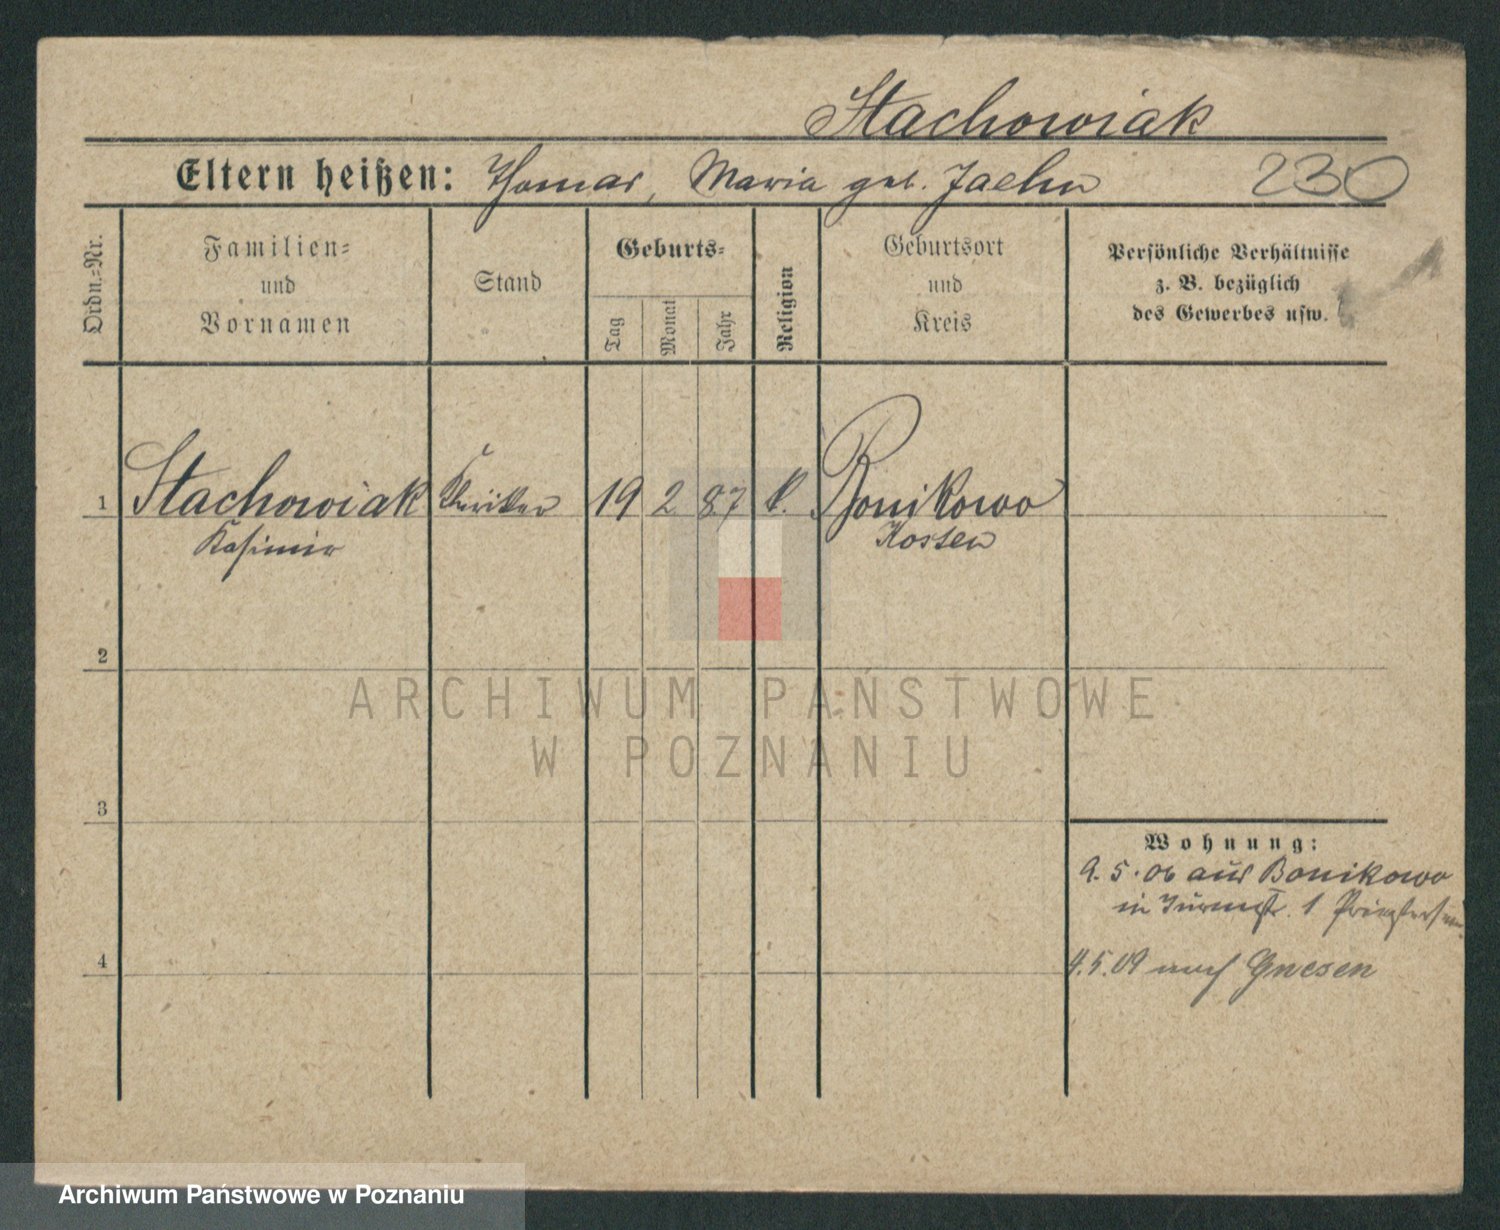 Stachowiak
Eltern heißen: Thomas, Maria geb. Jaehn 230
Ordn.-Nr.
Familien-
und
Vornamen
Stand
Geburts-
Tag
Monat
Jahr
Religion
Geburtsort
und
Kreis
Persönliche Verhältnisse
z. B. bezüglich
des Gewerbes usw.
1 Stachowiak Kleriker 19 2 87 k. Bonikowo
Kasimir Kosten
2
ARCHIWUM PAŃSTWOWE
W POZNANIU
3
Wohnung:
9.5.06 aus Bonikowo
in Turmstr. 1 Priestersem
4
4.5.09 nach Gnesen
Archiwum Państwowe w Poznaniu